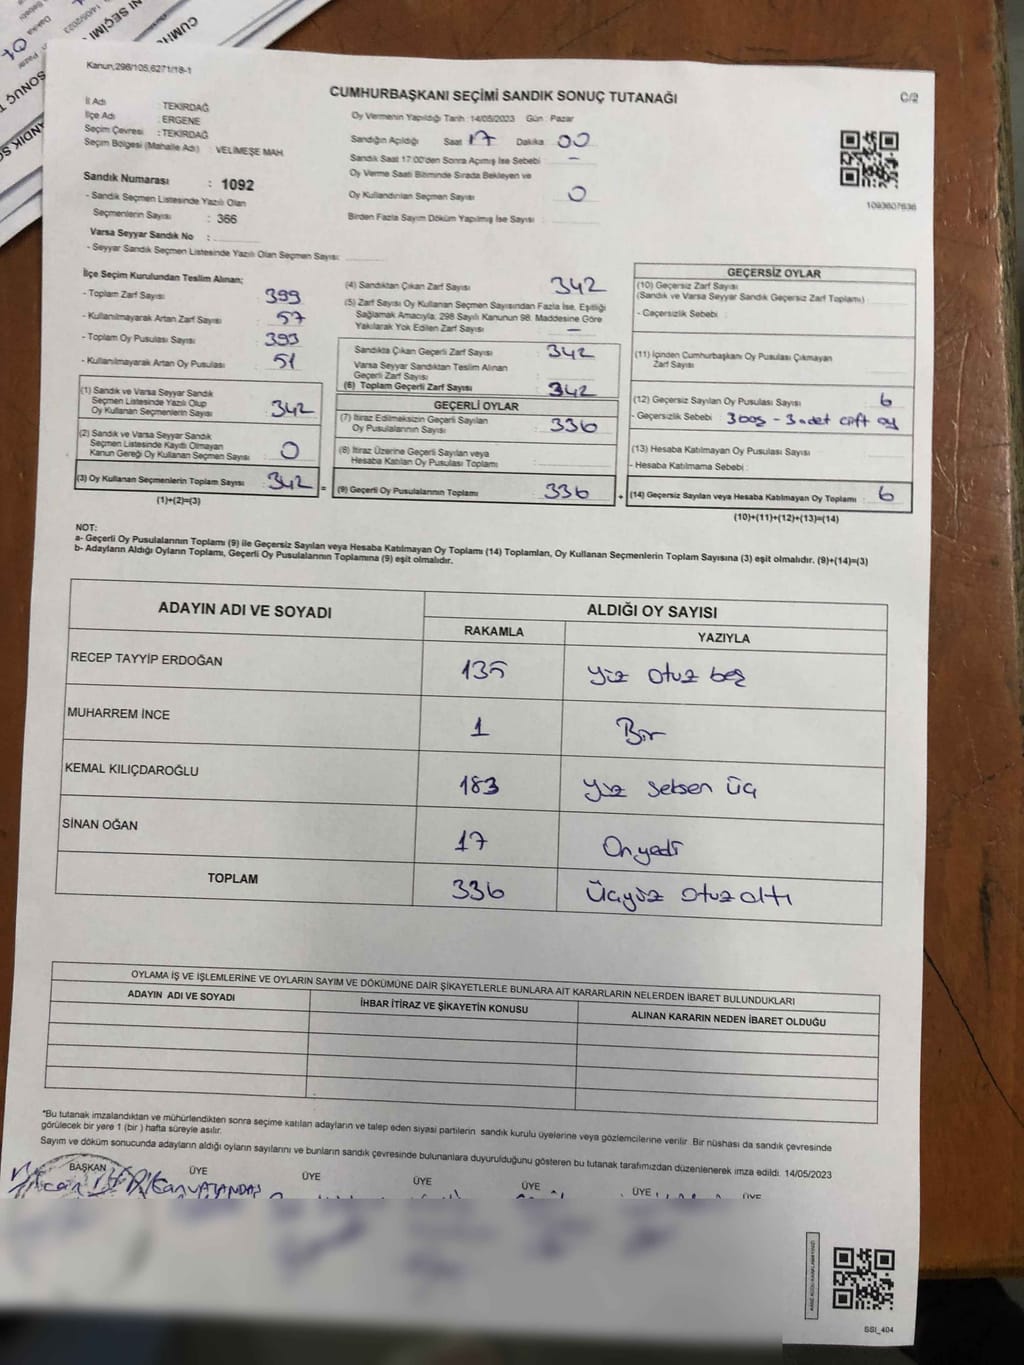 Kanun,298/105,6271/18-1
CUMHURBAŞKANI SEÇİMİ SANDIK SONUÇ TUTANAĞI
C/2
İl Adı : TEKİRDAĞ
İlçe Adı : ERGENE
Seçim Çevresi : TEKİRDAĞ
Seçim Bölgesi (Mahalle Adı) : VELİMEŞE MAH.
Oy Vermenin Yapıldığı Tarih :14/05/2023 Gün : Pazar
Sandığın Açıldığı Saat 17 Dakika 00
Sandık Saat 17:00'den Sonra Açılmış İse Sebebi : -
Oy Verme Saati Bitiminde Sırada Bekleyen ve
Oy Kullandırılan Seçmen Sayısı : 0
Birden Fazla Sayım Döküm Yapılmış İse Sayısı :
1093607636
Sandık Numarası : 1092
- Sandık Seçmen Listesinde Yazılı Olan
Seçmenlerin Sayısı : 366
Varsa Seyyar Sandık No :
- Seyyar Sandık Seçmen Listesinde Yazılı Olan Seçmen Sayısı:
İlçe Seçim Kurulundan Teslim Alınan;
- Toplam Zarf Sayısı : 399
- Kullanılmayarak Artan Zarf Sayısı : 57
- Toplam Oy Pusulası Sayısı : 393
- Kullanılmayarak Artan Oy Pusulası : 51
(1) Sandık ve Varsa Seyyar Sandık
Seçmen Listesinde Yazılı Olup
Oy Kullanan Seçmenlerin Sayısı : 342
(2) Sandık ve Varsa Seyyar Sandık
Seçmen Listesinde Kayıtlı Olmayan
Kanun Gereği Oy Kullanan Seçmen Sayısı : 0
(3) Oy Kullanan Seçmenlerin Toplam Sayısı : 342 =
(1)+(2)=(3)
(4) Sandıktan Çıkan Zarf Sayısı : 342
(5) Zarf Sayısı Oy Kullanan Seçmen Sayısından Fazla İse, Eşitliği
Sağlamak Amacıyla; 298 Sayılı Kanunun 98. Maddesine Göre
Yakılarak Yok Edilen Zarf Sayısı : -
Sandıkta Çıkan Geçerli Zarf Sayısı : 342
Varsa Seyyar Sandıktan Teslim Alınan
Geçerli Zarf Sayısı :
(6) Toplam Geçerli Zarf Sayısı : 342
GEÇERLİ OYLAR
(7) İtiraz Edilmeksizin Geçerli Sayılan
Oy Pusulalarının Sayısı : 336
(8) İtiraz Üzerine Geçerli Sayılan veya
Hesaba Katılan Oy Pusulası Toplamı :
(9) Geçerli Oy Pusulalarının Toplamı : 336 +
GEÇERSİZ OYLAR
(10) Geçersiz Zarf Sayısı
(Sandık ve Varsa Seyyar Sandık Geçersiz Zarf Toplamı) :
- Geçersizlik Sebebi :
(11) İçinden Cumhurbaşkanı Oy Pusulası Çıkmayan
Zarf Sayısı :
(12) Geçersiz Sayılan Oy Pusulası Sayısı : 6
- Geçersizlik Sebebi : 3 boş - 3 adet çift oy
(13) Hesaba Katılmayan Oy Pusulası Sayısı :
- Hesaba Katılmama Sebebi :
(14) Geçersiz Sayılan veya Hesaba Katılmayan Oy Toplamı : 6
(10)+(11)+(12)+(13)=(14)
NOT:
a- Geçerli Oy Pusulalarının Toplamı (9) ile Geçersiz Sayılan veya Hesaba Katılmayan Oy Toplamı (14) Toplamları, Oy Kullanan Seçmenlerin Toplam Sayısına (3) eşit olmalıdır. (9)+(14)=(3)
b- Adayların Aldığı Oyların Toplamı, Geçerli Oy Pusulalarının Toplamına (9) eşit olmalıdır.
ADAYIN ADI VE SOYADI ALDIĞI OY SAYISI
RAKAMLA YAZIYLA
RECEP TAYYİP ERDOĞAN 135 Yüz otuz beş
MUHARREM İNCE 1 Bir
KEMAL KILIÇDAROĞLU 183 Yüz seksen üç
SİNAN OĞAN 17 Onyedi
TOPLAM 336 Üçyüz otuzaltı
OYLAMA İŞ VE İŞLEMLERİNE VE OYLARIN SAYIM VE DÖKÜMÜNE DAİR ŞİKAYETLERLE BUNLARA AİT KARARLARIN NELERDEN İBARET BULUNDUKLARI
ADAYIN ADI VE SOYADI İHBAR İTİRAZ VE ŞİKAYETİN KONUSU ALINAN KARARIN NEDEN İBARET OLDUĞU
*Bu tutanak imzalandıktan ve mühürlendikten sonra seçime katılan adayların ve talep eden siyasi partilerin sandık kurulu üyelerine veya gözlemcilerine verilir. Bir nüshası da sandık çevresinde
görülecek bir yere 1 (bir ) hafta süreyle asılır.
Sayım ve döküm sonucunda adayların aldığı oyların sayılarını ve bunların sandık çevresinde bulunanlara duyurulduğunu gösteren bu tutanak tarafımızdan düzenlenerek imza edildi. 14/05/2023
BAŞKAN ÜYE ÜYE ÜYE ÜYE ÜYE ÜYE
SSI_404